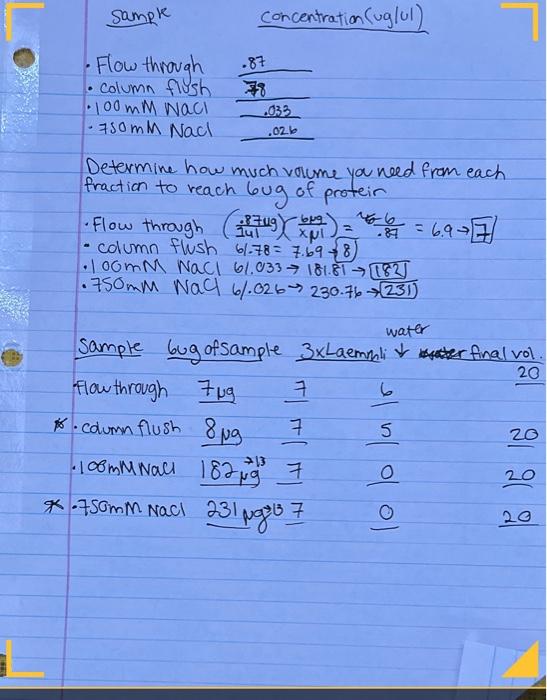 Sample Concentration (ug/ul)
• Flow through .87
• column flush .78
• 100 mM NaCl .033
• 750 mM NaCl .026
Determine how much volume you need from each
fraction to reach 6ug of protein
• Flow through (.87ug/1ul)(6ug/xul) = 6/.87 = 6.9 → 7
• column flush 6/.78 = 7.69 → 8
• 100mM NaCl 6/.033 → 181.81 → 182
• 750mM NaCl 6/.026 → 230.76 → 231
water
Sample 6ug of sample 3x Laemmli ↓ final vol.
Flow through 7 µg 7 6 20
* • column flush 8 µg 7 5 20
• 100mM NaCl 182 µg →13 7 0 20
* • 750mM NaCl 231 µg →13 7 0 20